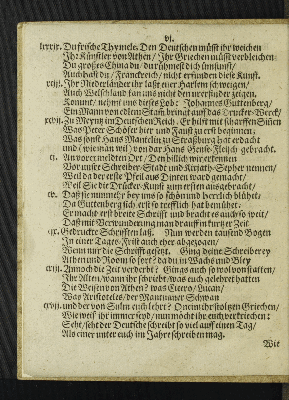 vj.
lxxxix. Du frische Thymele. Den Deutschen müsst ihr weichen
Ihr Künstler von Athen / Ihr Griechen müsst verbleichen
Du großes China du / du rühmest dich umsonst /
Auch hast du / Franckreich / nicht erfunden diese Kunst.
xciij. Ihr Niederländer ihr last euer Harlem schweigen /
Auch Welschland kan uns nicht den ner finder zeigen,
Kommt / nehmt uns dieses Lob: Johannes Guttenberg /
Ein Mann von edlem Stam bringt auf das Drucker-Werck /
xcvij. Zu Meyntz im Deutschen Reich. Er hilft mit scharffen Siñen
Was Peter Schöfer hier und Faust zu erst beginnen;
Was sonst Hans Mantelin zu Straßburg hat erdacht
und (wie man wil) vor dar Hans Gense-Fleisch gebracht.
cj. An vor ermeldten Ort / Den billich wir erkennen
Vor unser Schreiber-Stadt und Kirjath-Sepher nennen /
Weil da der erste Pfeil aus Dinten ward gemacht /
Weil Sie die Drucker-Kunst zum ersten ausgebracht /
cv. Daß sie nunmehr bey uns so schön und herrlich blühet /
Da Guttenberg sich erst so trefflich hat bemühet.
Er macht erst breite Schrifft und bracht es auch so weit /
Daß mit Verwunderung man drauff in kurtzer Zeit
cix. Gedruckte Schrifften laß. Nun werden tausend Bogen
In einer Tages-Frist auch eher abgezogen /
Wenn nur die Schrifft gesetzt. Ging deine Schreiberey
Athen und Room so fort? da du in Wachs und Bley
cxiij. Annoch die Zeit verderbt? Gings auch so wol von statten /
Ihr Alten / wann ihr schriebt / was euch gelehret hatten
Die Weisen von Athen? was Cicero / Lucan /
Was Aristoteles / der Mantuaner Schwan
cxvij. und der von Sulm euch lehrt? O nein ihr stoltzen Griechen /
Wie weis' ihr immer seyd / nun möcht ihr euch verkriechen:
Seht / seht der Deutsche schreibt so viel auff einen Tag /
Als einer unter euch im Jahr schreiben mag.
Wie